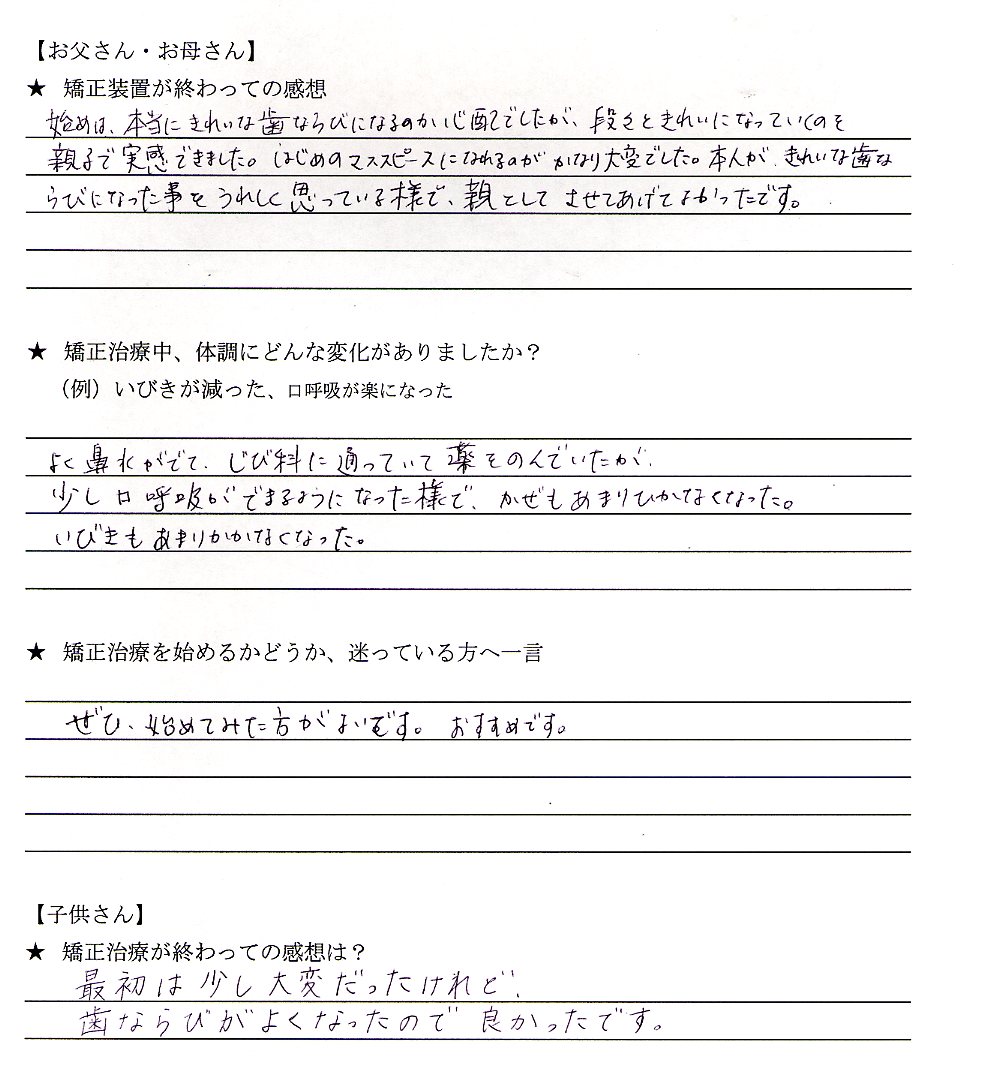 【お父さん・お母さん】
★ 矯正装置が終わっての感想
始めは、本当にきれいな歯ならびになるのか心配でしたが、段々ときれいになっていくのを
親子で実感できました。はじめのマススピースになれるのがかなり大変でした。本人が、きれいな歯な
らびになった事をうれしく思っている様で、親としてさせてあげてよかったです。
★ 矯正治療中、体調にどんな変化がありましたか？
（例）いびきが減った、口呼吸が楽になった
よく鼻水がでて、じび科に通っていて薬をのんでいたが、
少し口呼吸ができるようになった様で、かぜもあまりひかなくなった。
いびきもあまりかかなくなった。
★ 矯正治療を始めるかどうか、迷っている方へ一言
ぜひ、始めてみた方がよいです。おすすめです。
【子供さん】
★ 矯正治療が終わっての感想は？
最初は少し大変だったけれど、
歯ならびがよくなったので良かったです。